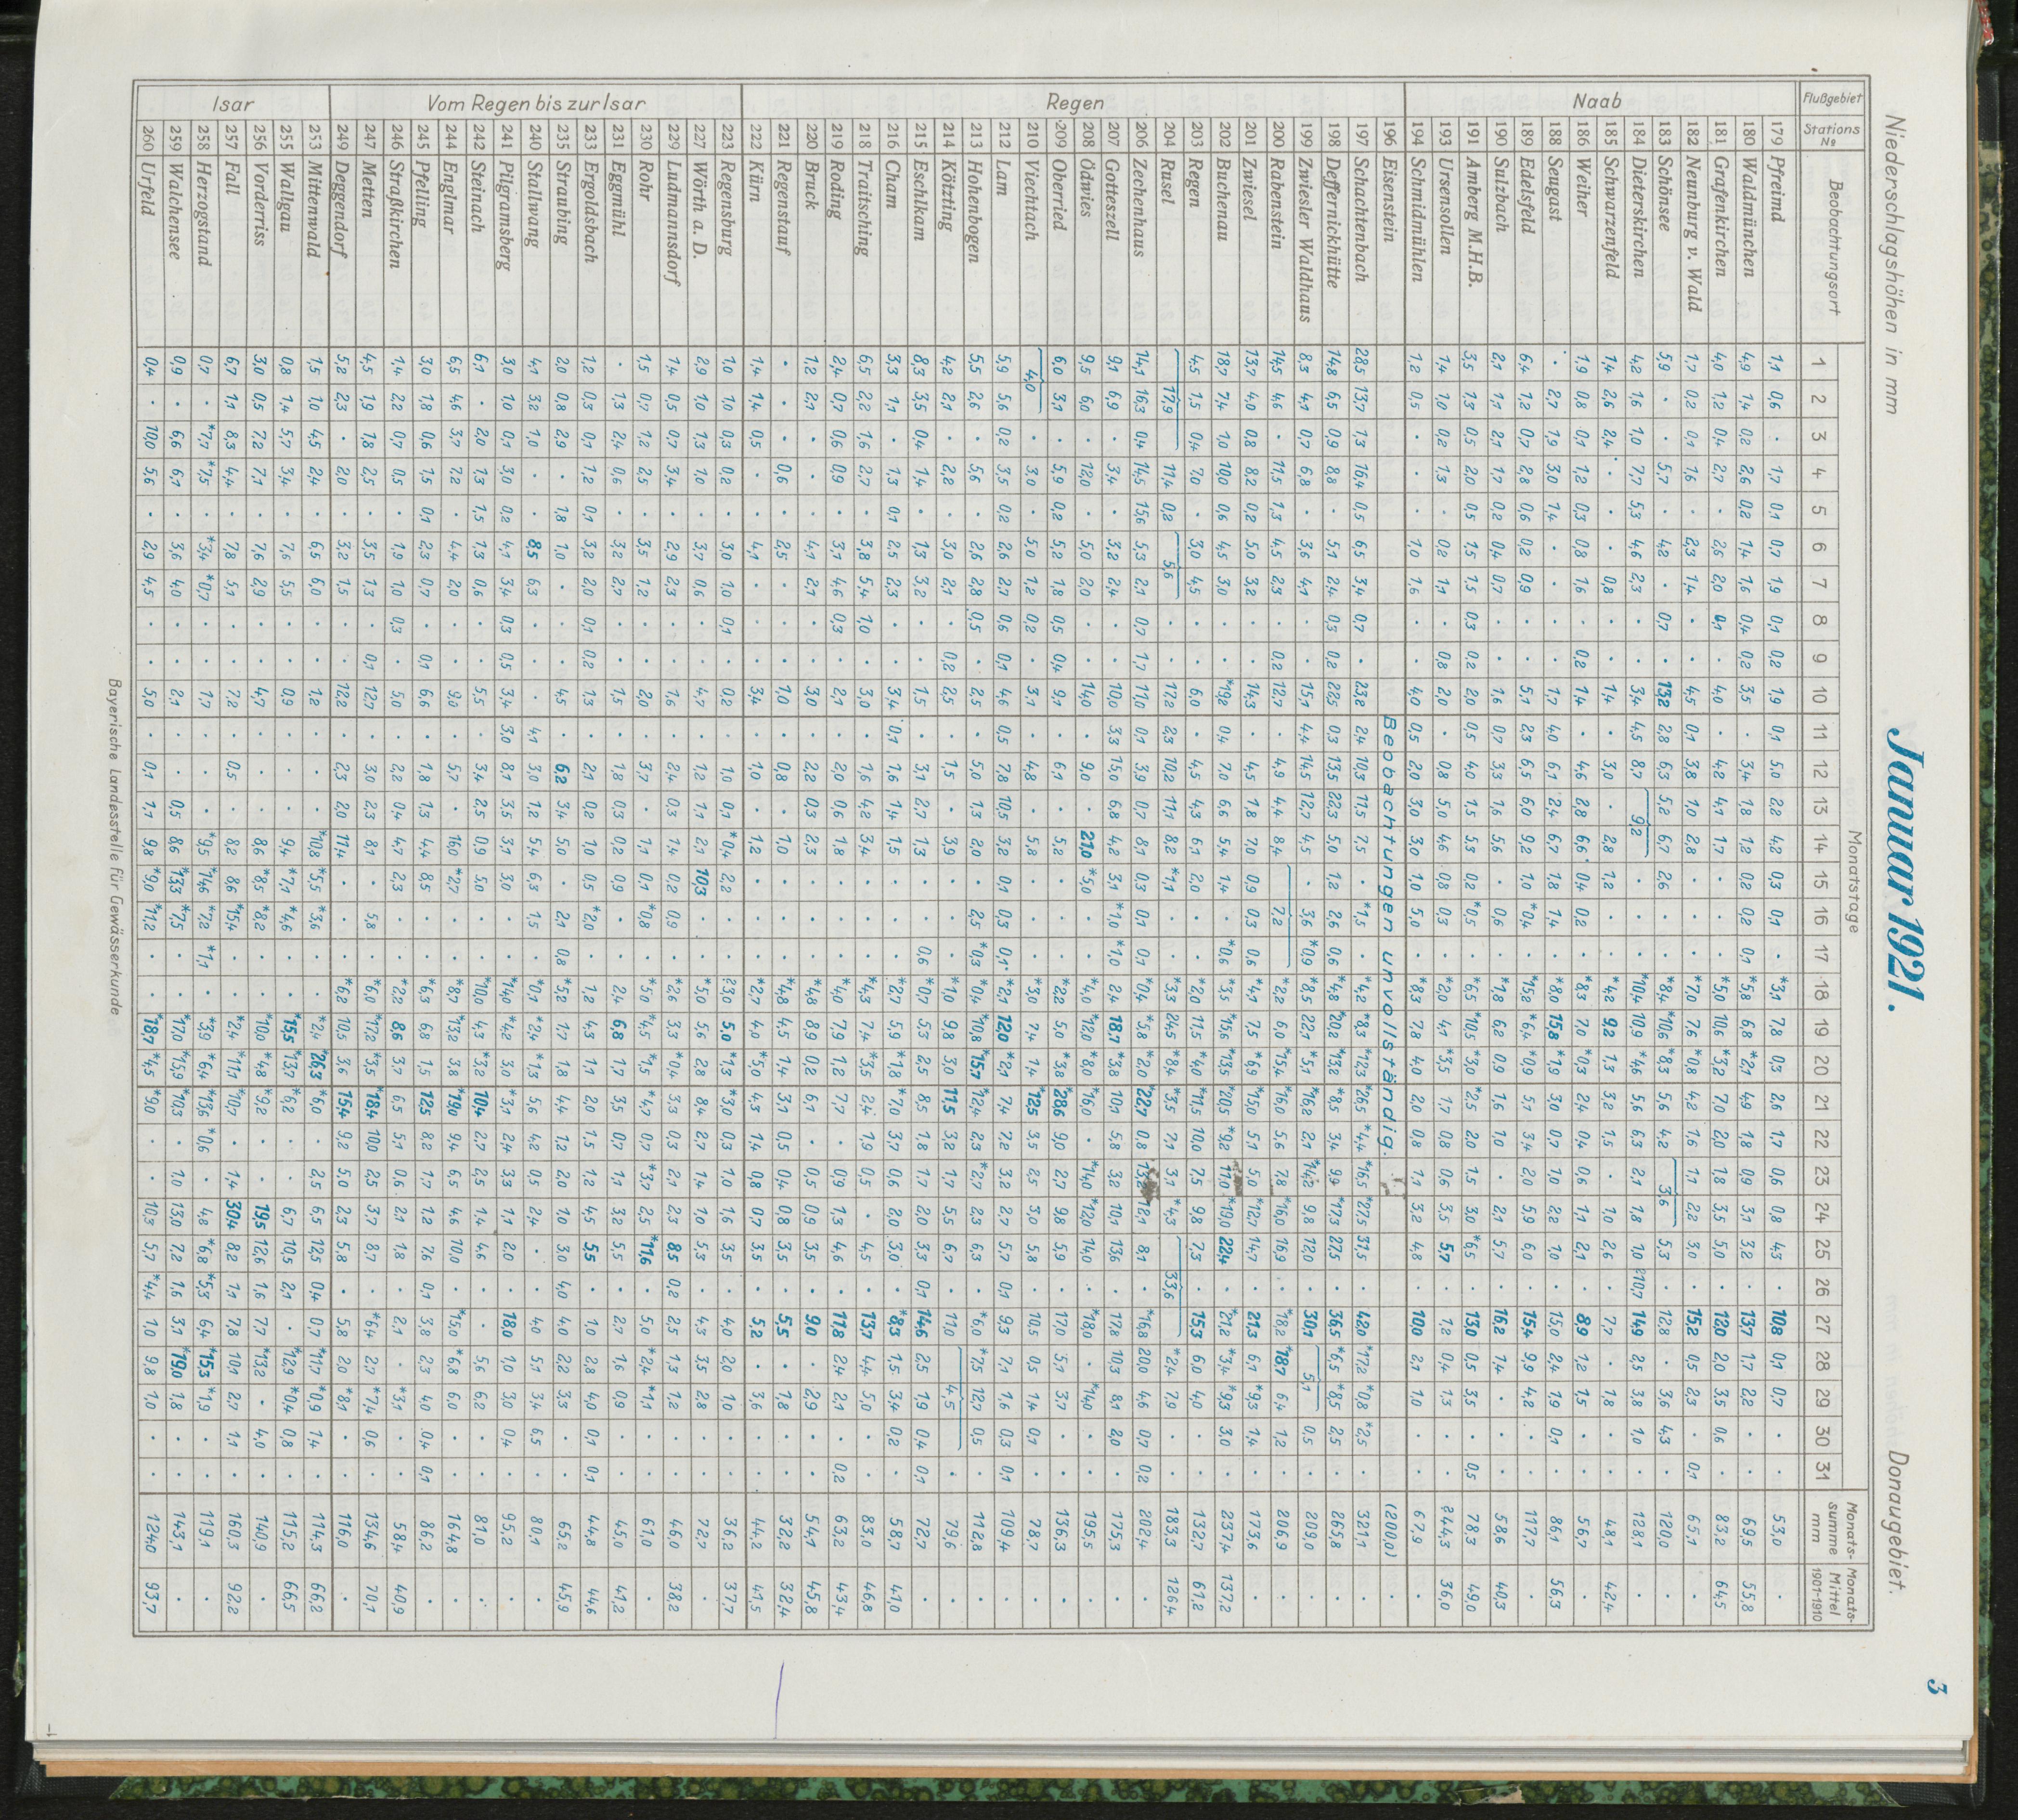 Niederschlagshöhen in mm Januar 1921. Donaugebiet. 3
Flußgebiet Stations № Beobachtungsort Monatstage Monats-summe mm Monats-Mittel 1901-1910
1 2 3 4 5 6 7 8 9 10 11 12 13 14 15 16 17 18 19 20 21 22 23 24 25 26 27 28 29 30 31
Naab
179 Pfreimd 1,1 0,6 . 1,7 0,1 0,7 1,9 0,1 0,2 1,9 0,1 5,0 2,2 4,2 0,3 0,1 . *3,1 7,8 0,3 2,6 1,7 0,6 0,8 4,3 . 10,8 0,1 0,7 . . 53,0 .
180 Waldmünchen 4,9 1,4 0,2 2,6 0,2 1,4 1,6 0,4 0,2 3,5 . 3,4 1,8 1,2 0,2 0,2 0,1 *5,8 6,8 *2,7 4,9 1,8 0,9 3,1 3,2 . 13,7 1,7 2,2 . . 69,5 55,8
181 Grafenkirchen 4,0 1,2 0,4 2,7 . 2,6 2,0 0,1 . 4,0 . 4,2 4,1 1,7 . . . *5,0 10,6 *3,2 7,0 2,0 1,8 3,5 5,0 . 12,0 2,0 3,5 0,6 . 83,2 64,5
182 Neunburg v. Wald 1,7 0,2 0,1 1,6 . 2,3 1,4 . . 4,5 0,1 3,8 1,0 2,8 . . . *7,0 7,6 *0,8 4,2 1,6 1,1 2,2 3,0 . 15,2 0,5 2,3 . 0,1 65,1 .
183 Schönsee 5,9 . . 5,7 . 4,2 . 0,7 . 13,2 2,8 6,3 5,2 6,7 2,6 . . *8,4 *10,6 *8,3 5,6 4,2 3,6 5,3 . 12,8 . 3,6 4,3 . 120,0 .
184 Dieterskirchen 4,2 1,6 1,0 7,7 5,3 4,6 2,3 . . 3,4 4,5 8,7 9,2 . . . *10,4 10,9 *4,6 5,6 6,3 2,1 1,8 1,0 ?10,7 14,9 2,5 3,8 1,0 . 128,1 .
185 Schwarzenfeld 1,4 2,6 2,4 . . . 0,8 . . 1,4 . 3,0 . 2,8 1,2 . . *4,2 9,2 1,3 3,2 1,5 . 1,0 2,6 . 7,7 . 1,8 . . 48,1 42,4
186 Weiher 1,9 0,8 0,1 1,2 0,3 0,8 1,6 . 0,2 1,4 . 4,6 2,8 6,6 0,4 0,2 . *8,3 7,0 *0,3 2,4 0,4 0,6 1,1 2,1 . 8,9 1,2 1,5 . . 56,7 .
188 Seugast . 2,7 1,9 3,0 1,4 . . . . 1,7 4,0 6,1 2,4 6,7 1,8 1,4 . *8,0 15,8 *1,9 3,0 0,7 1,0 2,2 1,0 . 15,0 2,4 1,9 0,1 . 86,1 56,3
189 Edelsfeld 6,4 1,2 0,7 2,8 0,6 0,2 0,9 . . 5,1 2,3 6,5 6,0 9,2 1,0 *0,4 . *15,2 *6,4 *0,9 5,1 3,4 2,0 5,9 6,0 . 15,4 9,9 4,2 . . 117,7 .
190 Sulzbach 2,1 1,1 2,1 1,7 0,2 0,4 0,7 . . 1,6 0,7 3,3 1,6 5,6 . 0,6 . *1,8 6,2 0,9 1,6 1,0 . 2,1 5,7 . 16,2 1,4 . . . 58,6 40,3
191 Amberg M.H.B. 3,5 1,3 0,5 2,0 0,5 1,5 1,5 0,3 0,2 2,0 0,5 4,0 1,5 5,3 0,2 *0,5 . *6,5 *10,5 *3,0 *2,5 2,0 1,5 3,0 *6,5 . 13,0 0,5 3,5 . 0,5 78,3 49,0
193 Ursensollen 1,4 1,0 0,2 1,3 . 0,2 1,1 . 0,8 2,0 . 0,8 5,0 4,6 0,8 0,3 . *2,0 4,1 *3,5 1,7 0,8 0,6 3,5 5,7 . 1,2 0,4 1,3 . . ?44,3 36,0
194 Schmidmühlen 1,2 0,5 . . . 1,0 1,6 . . 4,0 0,5 2,0 3,0 3,0 1,0 5,0 . *8,3 7,8 4,0 2,0 0,8 1,1 3,2 4,8 . 10,0 2,1 1,0 . . 67,9 .
Regen
196 Eisenstein Beobachtungen unvollständig. (200,0) .
197 Schachtenbach 28,5 13,7 1,3 16,4 0,5 6,5 3,4 0,7 . 23,2 2,4 10,3 11,5 7,5 . *1,5 . *4,2 *8,3 *12,3 *26,5 *4,4 *16,5 *27,5 31,5 . 42,0 *17,2 *0,8 *2,5 . 321,1 .
198 Deffernickhütte 14,8 6,5 0,9 8,8 . 5,1 2,4 0,3 0,2 22,5 0,3 13,5 22,3 5,0 1,2 2,6 0,6 *4,8 *20,2 *13,2 *8,5 3,4 9,9 *17,3 27,5 . 36,5 *6,5 *8,5 2,5 . 265,8 .
199 Zwiesler Waldhaus 8,3 4,1 0,7 6,8 . 3,6 4,1 . . 15,1 4,4 14,5 12,7 4,5 . 3,6 *0,9 *8,5 22,1 *5,1 *16,2 2,1 *14,2 9,8 12,0 . 30,1 5,1 0,5 . 209,0 .
200 Rabenstein 14,5 4,6 . 11,5 1,3 4,5 2,3 . 0,2 12,7 . 4,9 4,4 8,4 7,2 *2,2 6,0 *15,4 *16,0 5,6 7,8 *16,0 16,9 . *18,2 *18,7 6,4 1,2 . 206,9 .
201 Zwiesel 13,7 4,0 0,8 8,2 0,2 5,0 3,2 . . 14,3 . 4,5 1,8 7,0 0,9 0,3 0,6 *4,1 7,5 *6,9 *15,0 5,1 5,0 *12,7 14,7 . 21,3 6,1 *9,3 1,4 . 173,6 .
202 Buchenau 18,7 7,4 1,0 10,0 0,6 4,5 3,0 . . *19,2 0,4 7,0 6,6 5,4 1,4 . *0,6 *3,5 *15,6 *13,5 *20,5 *9,2 11,0 *19,0 22,4 . *21,2 *3,4 *9,3 3,0 . 237,4 137,2
203 Regen 4,5 1,5 0,4 7,0 . 3,0 4,5 . . 6,0 . 4,5 4,3 6,1 2,0 . . *2,0 11,5 *4,0 *11,5 10,0 7,5 9,8 7,3 . 15,3 6,0 4,0 . . 132,7 61,2
204 Rusel 17,9 11,4 0,2 5,6 . . 17,2 2,3 10,2 11,1 8,2 *1,1 . . *3,3 24,5 *8,4 *3,5 7,1 3,1 *4,3 33,6 *2,4 7,9 . . 183,3 126,4
206 Zechenhaus 14,1 16,3 0,4 14,5 15,6 5,3 2,1 0,7 1,7 11,0 0,1 3,9 0,7 8,1 0,3 0,1 0,1 *0,4 *5,8 *2,0 *22,7 0,8 12,1 8,1 . *16,8 20,0 4,6 0,7 0,2 202,4 .
207 Gotteszell 9,1 6,9 . 3,4 . 3,2 2,4 . . 10,0 3,3 15,0 6,8 4,2 3,1 *1,0 *1,0 2,4 18,7 *3,8 10,1 5,8 3,2 10,1 13,6 . 17,8 10,3 8,1 2,0 . 175,3 .
208 Ödwies 9,5 6,0 . 12,0 . 5,0 2,0 . . 14,0 . 9,0 . 21,0 *5,0 . . *4,0 *12,0 *8,0 *16,0 . *14,0 *12,0 14,0 . *18,0 . *14,0 . . 195,5 .
209 Oberried 6,0 3,1 . 5,9 0,2 5,2 1,8 0,5 0,4 9,1 . 6,1 . 5,2 . . . *2,2 5,0 *3,8 *28,6 9,0 2,7 9,8 5,9 . 17,0 5,1 3,7 . . 136,3 .
210 Viechtach 4,0 . 3,0 . 5,0 1,2 0,2 . 3,1 . 4,8 . 5,8 . . . *3,0 7,4 1,4 *12,5 3,5 2,5 3,0 5,8 . 10,5 0,5 1,4 0,1 . 78,7 .
212 Lam 5,9 5,6 0,2 3,5 0,2 2,6 2,7 0,6 0,1 4,6 0,5 7,8 10,5 3,2 0,1 0,3 0,1 *2,1 12,0 *2,1 7,4 7,2 3,2 2,7 5,7 0,1 9,3 7,1 1,6 0,3 0,1 109,4 .
213 Hohenbogen 5,5 2,6 . 5,6 . 2,6 2,8 0,5 . 2,5 . 5,0 1,3 2,0 . 2,5 *0,3 *0,4 *10,8 *15,7 *12,4 2,3 *2,7 2,3 6,3 . *6,0 *7,5 12,7 0,5 . 112,8 .
214 Kötzting 4,2 2,1 . 2,2 . 3,0 2,1 . 0,2 2,5 . 1,5 . 3,9 . . . *1,0 9,8 3,0 11,5 3,2 1,7 5,5 6,7 . 11,0 4,5 . 79,6 .
215 Eschlkam 8,3 3,5 0,4 1,4 . 1,3 3,2 . . 1,5 . 3,1 2,7 1,3 . . 0,6 *0,7 5,3 2,5 8,5 1,8 1,7 2,0 3,3 0,1 14,6 2,5 1,9 0,4 0,1 72,7 .
216 Cham 3,3 1,1 . 1,3 0,1 2,5 2,3 . . 3,4 0,1 1,6 1,4 1,5 . . . *2,7 5,9 *1,8 *7,0 3,7 0,6 2,0 3,0 . *8,3 1,5 3,4 0,2 . 58,7 41,0
218 Traitsching 6,5 2,2 1,6 2,7 . 3,8 5,4 1,0 . 3,0 . 1,6 4,2 3,4 . . . *4,3 7,4 *3,5 2,4 1,9 0,5 . 4,5 . 13,7 4,4 5,0 . . 83,0 46,8
219 Roding 2,4 0,7 0,6 0,9 . 3,1 4,6 0,3 . 2,1 . 2,0 0,6 1,8 . . . *4,0 7,9 1,2 7,7 . 0,9 1,3 4,6 . 11,8 2,4 2,1 . 0,2 63,2 43,4
220 Bruck 1,2 2,1 . . . 4,1 2,1 . . 3,0 . 2,2 0,3 2,3 . . . *4,8 8,9 0,2 6,1 . 0,5 0,9 3,5 . 9,0 . 2,9 . . 54,1 45,8
221 Regenstauf . . . 0,6 . 2,5 . . . 1,0 . 0,8 . 1,0 . . . *4,8 4,5 1,4 3,1 0,5 0,4 0,8 3,5 . 5,5 . 1,8 . . 32,2 32,4
222 Kürn 1,4 1,4 0,5 . . 4,1 . . . 3,4 . 1,0 . 1,2 . . . *2,7 4,0 *5,0 4,3 1,4 0,8 0,7 3,5 . 5,2 . 3,6 . . 44,2 41,5
Vom Regen bis zur Isar
223 Regensburg 1,0 1,0 0,3 0,2 . 3,0 1,0 0,1 . 0,2 . 1,0 0,1 *0,4 2,2 . . ?3,0 5,0 *1,3 *3,0 0,3 1,0 1,6 3,5 . 4,0 2,0 1,0 . . 36,2 37,7
227 Wörth a. D. 2,9 1,0 1,3 1,0 . 3,7 0,6 . . 4,7 . 1,2 1,1 2,1 10,3 . . *5,0 5,6 2,8 8,4 2,7 1,4 1,0 5,3 . 4,3 3,5 2,8 . . 72,7 .
229 Ludmannsdorf 1,4 0,5 0,7 3,4 . 2,9 2,3 . . 1,6 . 2,4 0,3 1,4 0,2 0,9 . *2,6 3,3 *0,4 3,3 0,3 2,1 2,3 8,5 0,2 2,5 1,3 1,2 . . 46,0 38,2
230 Rohr 1,5 0,7 1,2 2,5 . 3,5 1,2 . . 2,0 . 3,7 . 1,1 0,1 *0,8 . *5,0 *4,5 *1,5 *4,7 0,7 *3,7 2,5 *11,6 . 5,0 *2,4 *1,1 . . 61,0 .
231 Eggmühl . 1,3 2,4 0,6 . 3,2 2,7 . . 1,5 . 1,8 0,3 0,2 0,9 . . 2,4 6,8 1,7 3,5 0,7 1,1 3,2 5,5 . 2,7 1,6 0,9 . . 45,0 41,2
233 Ergoldsbach 1,2 0,3 0,1 1,2 0,1 3,2 2,0 0,1 0,2 1,3 . 2,1 0,2 1,0 0,5 *2,0 . 1,2 4,3 1,1 2,0 1,5 1,2 4,5 5,5 . 1,0 2,8 4,0 0,1 0,1 44,8 44,6
235 Straubing 2,0 0,8 2,9 . 1,8 1,0 . . . 4,5 . 6,2 3,4 5,0 . 2,1 0,8 *5,2 1,7 1,8 4,4 1,2 2,0 1,0 3,0 4,0 4,0 2,2 3,3 . . 65,2 45,9
240 Stallwang 4,1 3,2 1,0 . . 8,5 6,3 . . . 4,1 3,0 1,2 5,4 6,3 1,5 . *0,1 *2,4 *1,3 5,6 4,2 0,5 2,4 . . 4,0 5,1 3,4 6,5 . 80,1 .
241 Pilgramsberg 3,0 1,0 0,1 3,0 0,2 4,1 3,4 0,3 0,5 3,4 3,0 8,1 3,5 3,1 3,0 . . *14,0 *4,2 3,0 *3,1 2,4 3,3 1,1 2,0 . 18,0 1,0 3,0 0,4 . 95,2 .
242 Steinach 6,1 . 2,0 1,3 1,5 1,3 0,6 . . 5,5 . 3,4 2,5 0,9 5,0 . . *10,0 4,3 *3,2 10,4 2,7 2,5 1,4 4,6 . . 5,6 6,2 . . 81,0 .
244 Englmar 6,5 4,6 3,7 7,2 . 4,4 2,0 . . 9,0 . 5,7 . 16,0 *2,7 . . *8,7 *13,2 3,8 *19,0 9,4 6,5 4,6 10,0 . *15,0 *6,8 6,0 . . 164,8 .
245 Pfelling 3,0 1,8 0,6 1,5 0,1 2,3 0,7 . 0,1 6,6 . 1,8 1,3 4,4 8,5 . . *6,3 6,8 1,5 12,5 8,2 1,7 1,2 7,6 0,1 3,8 2,3 4,0 0,4 0,1 86,2 .
246 Straßkirchen 1,4 2,2 0,7 0,5 . 1,9 1,0 0,3 . 5,0 . 2,2 0,4 4,7 2,3 . . *2,2 8,6 3,7 6,5 5,1 0,6 2,1 1,8 . 2,1 . *3,1 . . 58,4 40,9
247 Metten 4,5 1,9 1,8 2,5 . 3,5 1,3 . 0,1 12,7 . 3,0 2,3 8,1 . 5,8 . *6,0 *17,2 *3,5 *18,4 10,0 2,5 3,7 8,7 . *6,4 2,7 *7,4 0,6 . 134,6 70,1
249 Deggendorf 5,2 2,3 . 2,0 . 3,2 1,5 . . 12,2 . 2,3 2,0 11,4 . . . *6,2 10,5 3,6 15,4 9,2 5,0 2,3 5,8 . 5,8 2,0 *8,1 . . 116,0 .
Isar
253 Mittenwald 1,5 1,0 4,5 2,4 . 6,5 6,0 . . 1,2 . . . *10,8 *5,5 *3,6 . . *2,4 *26,3 *6,0 . 2,5 6,5 12,5 0,4 0,7 *11,7 *0,9 1,4 . 114,3 66,2
255 Wallgau 0,8 1,4 5,7 3,4 . 7,6 5,5 . . 0,9 . . . 9,4 *7,1 *4,6 . . *15,5 *13,7 *6,2 . . 6,7 10,5 2,1 . *12,9 *0,4 0,8 . 115,2 66,5
256 Vorderriss 3,0 0,5 7,2 7,1 . 7,6 2,9 . . 4,7 . . . 8,6 *8,5 *8,2 . . *10,0 *4,8 *9,2 . . 19,5 12,6 1,6 7,7 *13,2 . 4,0 . 140,9 .
257 Fall 6,7 1,1 8,3 4,4 . 7,8 5,1 . . 7,2 . 0,5 . 8,2 8,6 *15,4 . . *2,4 *11,1 *10,7 . 1,4 30,4 8,2 1,1 7,8 10,1 2,7 1,1 . 160,3 92,2
258 Herzogstand 0,7 . *7,7 *7,5 . *3,4 *0,7 . . 1,7 . . . *9,5 *14,6 *7,2 *1,1 . *3,9 *6,4 *13,6 *0,6 . 4,8 *6,8 *5,3 6,4 *15,3 *1,9 . . 119,1 .
259 Walchensee 0,9 . 6,6 6,1 . 3,6 4,0 . . 2,1 . . 0,5 8,6 *13,3 *7,5 . . *17,0 *15,9 *10,3 . 1,0 13,0 7,2 1,6 3,1 *19,0 1,8 . . 143,1 .
260 Urfeld 0,4 . 10,0 5,6 . 2,9 4,5 . . 5,0 . 0,1 1,1 9,8 *9,0 *11,2 . . *18,7 *4,5 *9,0 . . 10,3 5,7 *4,4 1,0 9,8 1,0 . . 124,0 93,7
Bayerische Landesstelle für Gewässerkunde